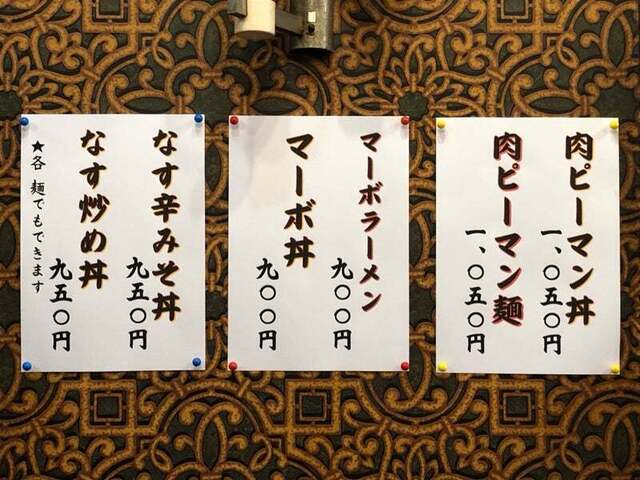 肉ピーマン丼
一、〇五〇円
肉ピーマン麺
一、〇五〇円
マーボラーメン
九〇〇円
マーボ丼
九〇〇円
なす辛みそ丼
九五〇円
なす炒め丼
九五〇円
★各 麺でもできます